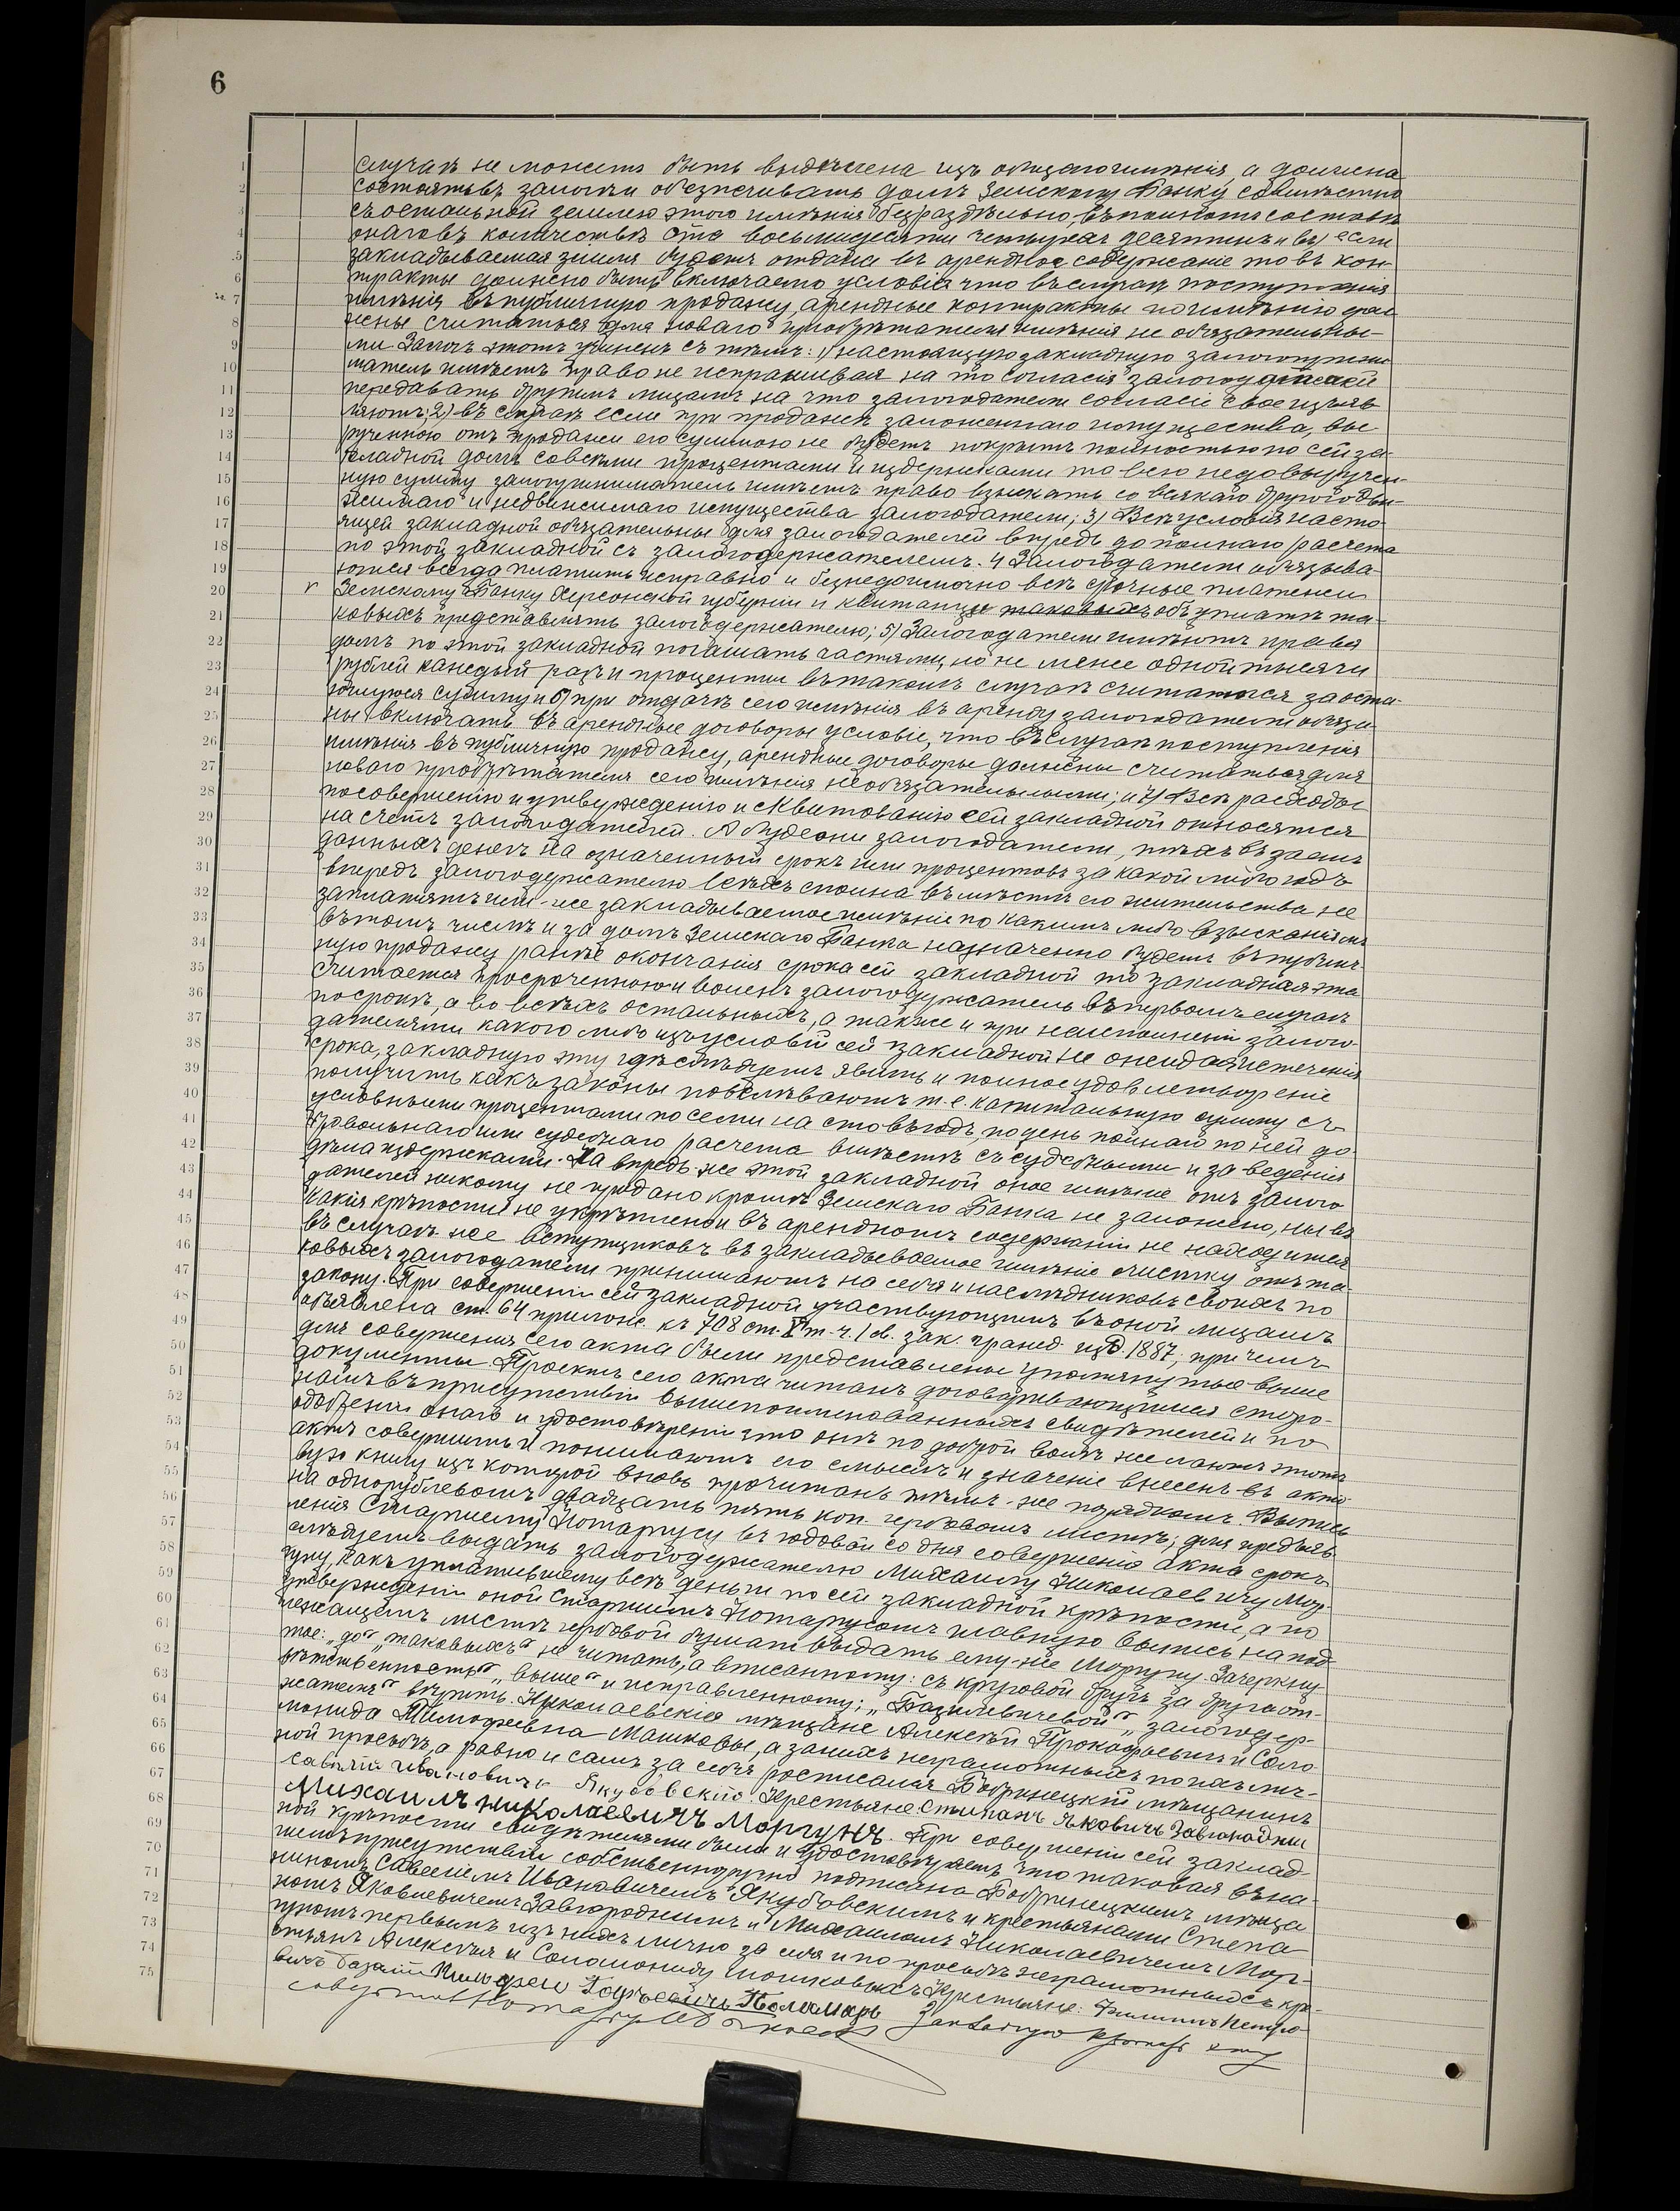 6
случаѣ не можетъ быть выдѣлена изъ общаго имѣнія, а должна
состоять въ залогѣ и обезпечивать долгъ Земскому Банку совмѣстно
съ остальной землею этого имѣнія безраздѣльно, въ полномъ составѣ
онаго въ количествѣ сто восьмидесяти четырехъ десятинъ и в) если
закладываемая земля будетъ отдана въ арендное содержаніе то въ кон-
тракты должно быть включаемо условіе что въ случаѣ поступленія
имѣнія въ публичную продажу, арендные контракты по имѣнію дол
жены считаться для новаго пріобрѣтателя имѣнія не обязательны-
ми. Залогъ этотъ учиненъ съ тѣмъ: 1) настоящую закладную залогоприни
матель имѣетъ право не испрашивая на то согласія залогодателей
передавать другимъ лицамъ на что залогодатели согласіе свое изъяв
ляютъ; 2) въ случаѣ если при продажѣ заложеннаго имущества, вы
рученною отъ продажи его суммою не будетъ покрытъ полностью по сей за
кладной долгъ со всѣми процентами и издержками то всю недовыручен-
ную сумму залогоприниматель имѣетъ право взыскать со всякаго другого дви-
жимаго и недвижимаго имущества залогодателей; 3) Всѣ условія насто-
ящей закладной обязательны для залогодателей впредь до полнаго расчета
по этой закладной съ залогодержателемъ. 4 Залогодатели обязыва-
ются всегда платить исправно и безнедоимочно всѣ срочные платежи
Земскому Банку Херсонской губерніи и квитанціи таковыхъ объ уплатѣ та-
ковыхъ представлять залогодержателю; 5) Залогодатели имѣютъ право
долгъ по этой закладной погашать частями, но не менѣе одной тысячи
рублей каждый разъ и проценты въ такомъ случаѣ считаются за оста-
ющуюся сумму и 6) при отдачѣ сего имѣнія въ аренду залогодатели обяза-
ны включать въ арендные договоры условіе, что въ случаѣ поступленія
имѣнія въ публичную продажу, арендные договоры должны считаться для
новаго пріобрѣтателя сего имѣнія необязательными; и 7) Всѣ расходы
по совершенію и утвержденію и сквитованію сей закладной относятся
на счетъ залогодателей. А буде они залогодатели, тѣхъ взаемъ
данныхъ денегъ на означенный срокъ или процентовъ за какой либо годъ
впередъ залогодержателю всѣхъ сполна въ мѣстѣ его жительства не
заплатятъ или-же закладываемое имѣніе по какимъ либо взысканіямъ
въ томъ числѣ и за долгъ Земскаго Банка назначено будетъ въ публич-
ную продажу ранѣе окончанія срока сей закладной то закладная эта
считается просроченною и воленъ залогодержатель въ первомъ случаѣ
по срокѣ, а во всѣхъ остальныхъ, а также и при неисполненіи залого-
дателями какого либо изъ условій сей закладной не ожидая истеченія
срока, закладную эту гдѣ слѣдуетъ явить и полное удовлетвореніе
получить какъ законы повелѣваютъ т.е. капитальную сумму съ
условными процентами по семи на сто въ годъ, по день полнаго по ней до-
бровольнаго или судебнаго расчета вмѣстѣ съ судебными и за веденія
дѣла издержками. На впредь же этой закладной оное имѣніе отъ залого
дателей никому не продано кромѣ Земскаго Банка не заложено, ни въ
какія крѣпости не укрѣплено и въ арендномъ содержаніи не находится
въ случаѣ же вступщиковъ въ закладываемое имѣніе очистку отъ та-
ковыхъ залогодатели принимаютъ на себя и наслѣдниковъ своихъ по
закону. При совершеніи сей закладной участвующимъ въ оной лицамъ
объявлена ст. 64 прилож. къ 708 ст. X т. ч. 1 св. зак. гражд. изд. 1887, при чемъ
для совершенія сего акта были представлены упомянутые выше
документы. Проектъ сего акта читанъ договаривающимся сторо-
намъ въ присутствіи вышепоименованныхъ свидѣтелей и по
одобреніи онаго и удостовѣреніи что онѣ по доброй волѣ желаютъ этотъ
актъ совершить и понимаютъ его смыслъ и значеніе внесенъ въ акто-
вую книгу изъ которой вновь прочитанъ тѣмъ-же порядкомъ. Выпись
на однорублевомъ двадцать пять коп. гербовомъ листѣ, для предъяв
ленія Старшему Нотаріусу въ годовой со дня совершенія акта срокъ
слѣдуетъ выдать залогодержателю Михаилу Николаевичу Мор-
гуну, какъ уплатившему всѣ деньги по сей закладной крѣпости, а по
утвержденіи оной Старшимъ Нотаріусомъ главную выпись на над-
лежащемъ листѣ гербовой бумаги выдать ему-же Моргуну. Зачеркну-
тое: „до" „таковыхъ" не читать, а вписанному: съ круговой другъ за друга от-
вѣтственностью" „выше" и исправленному: „Базилевичевой" „залогодер-
жателя" вѣрить. Николаевскіе мѣщане Алексѣй Прокофьевичъ и Соло
монида Тимофеевна Машковы, а за нихъ неграмотныхъ по ихъ лич-
ной просьбѣ, а равно и самъ за себя росписался Бобринецкій мѣщанинъ
Савелій Ивановичъ Якубовскій. Крестьяне Степанъ Яковичъ Завгородній
Михаилъ Николаевичъ Моргунъ. При совершеніи сей заклад
ной крѣпости свидѣтелями были и удостовѣряемъ что таковая въ на-
шемъ присутствіи собственноручно подписана Бобринецкимъ мѣща
ниномъ Савеліемъ Ивановичемъ Якубовскимъ и крестьянами Степа-
номъ Яковлевичемъ Завгороднимъ и Михаиломъ Николаевичемъ Мор-
гуномъ первымъ изъ нихъ лично за себя и по просьбѣ неграмотныхъ кре-
стьянъ Алексѣя и Соломониду Машковыхъ Крестьяне: Филиппъ Петро-
вичъ Тимофей Паламарь
Нотаріусъ